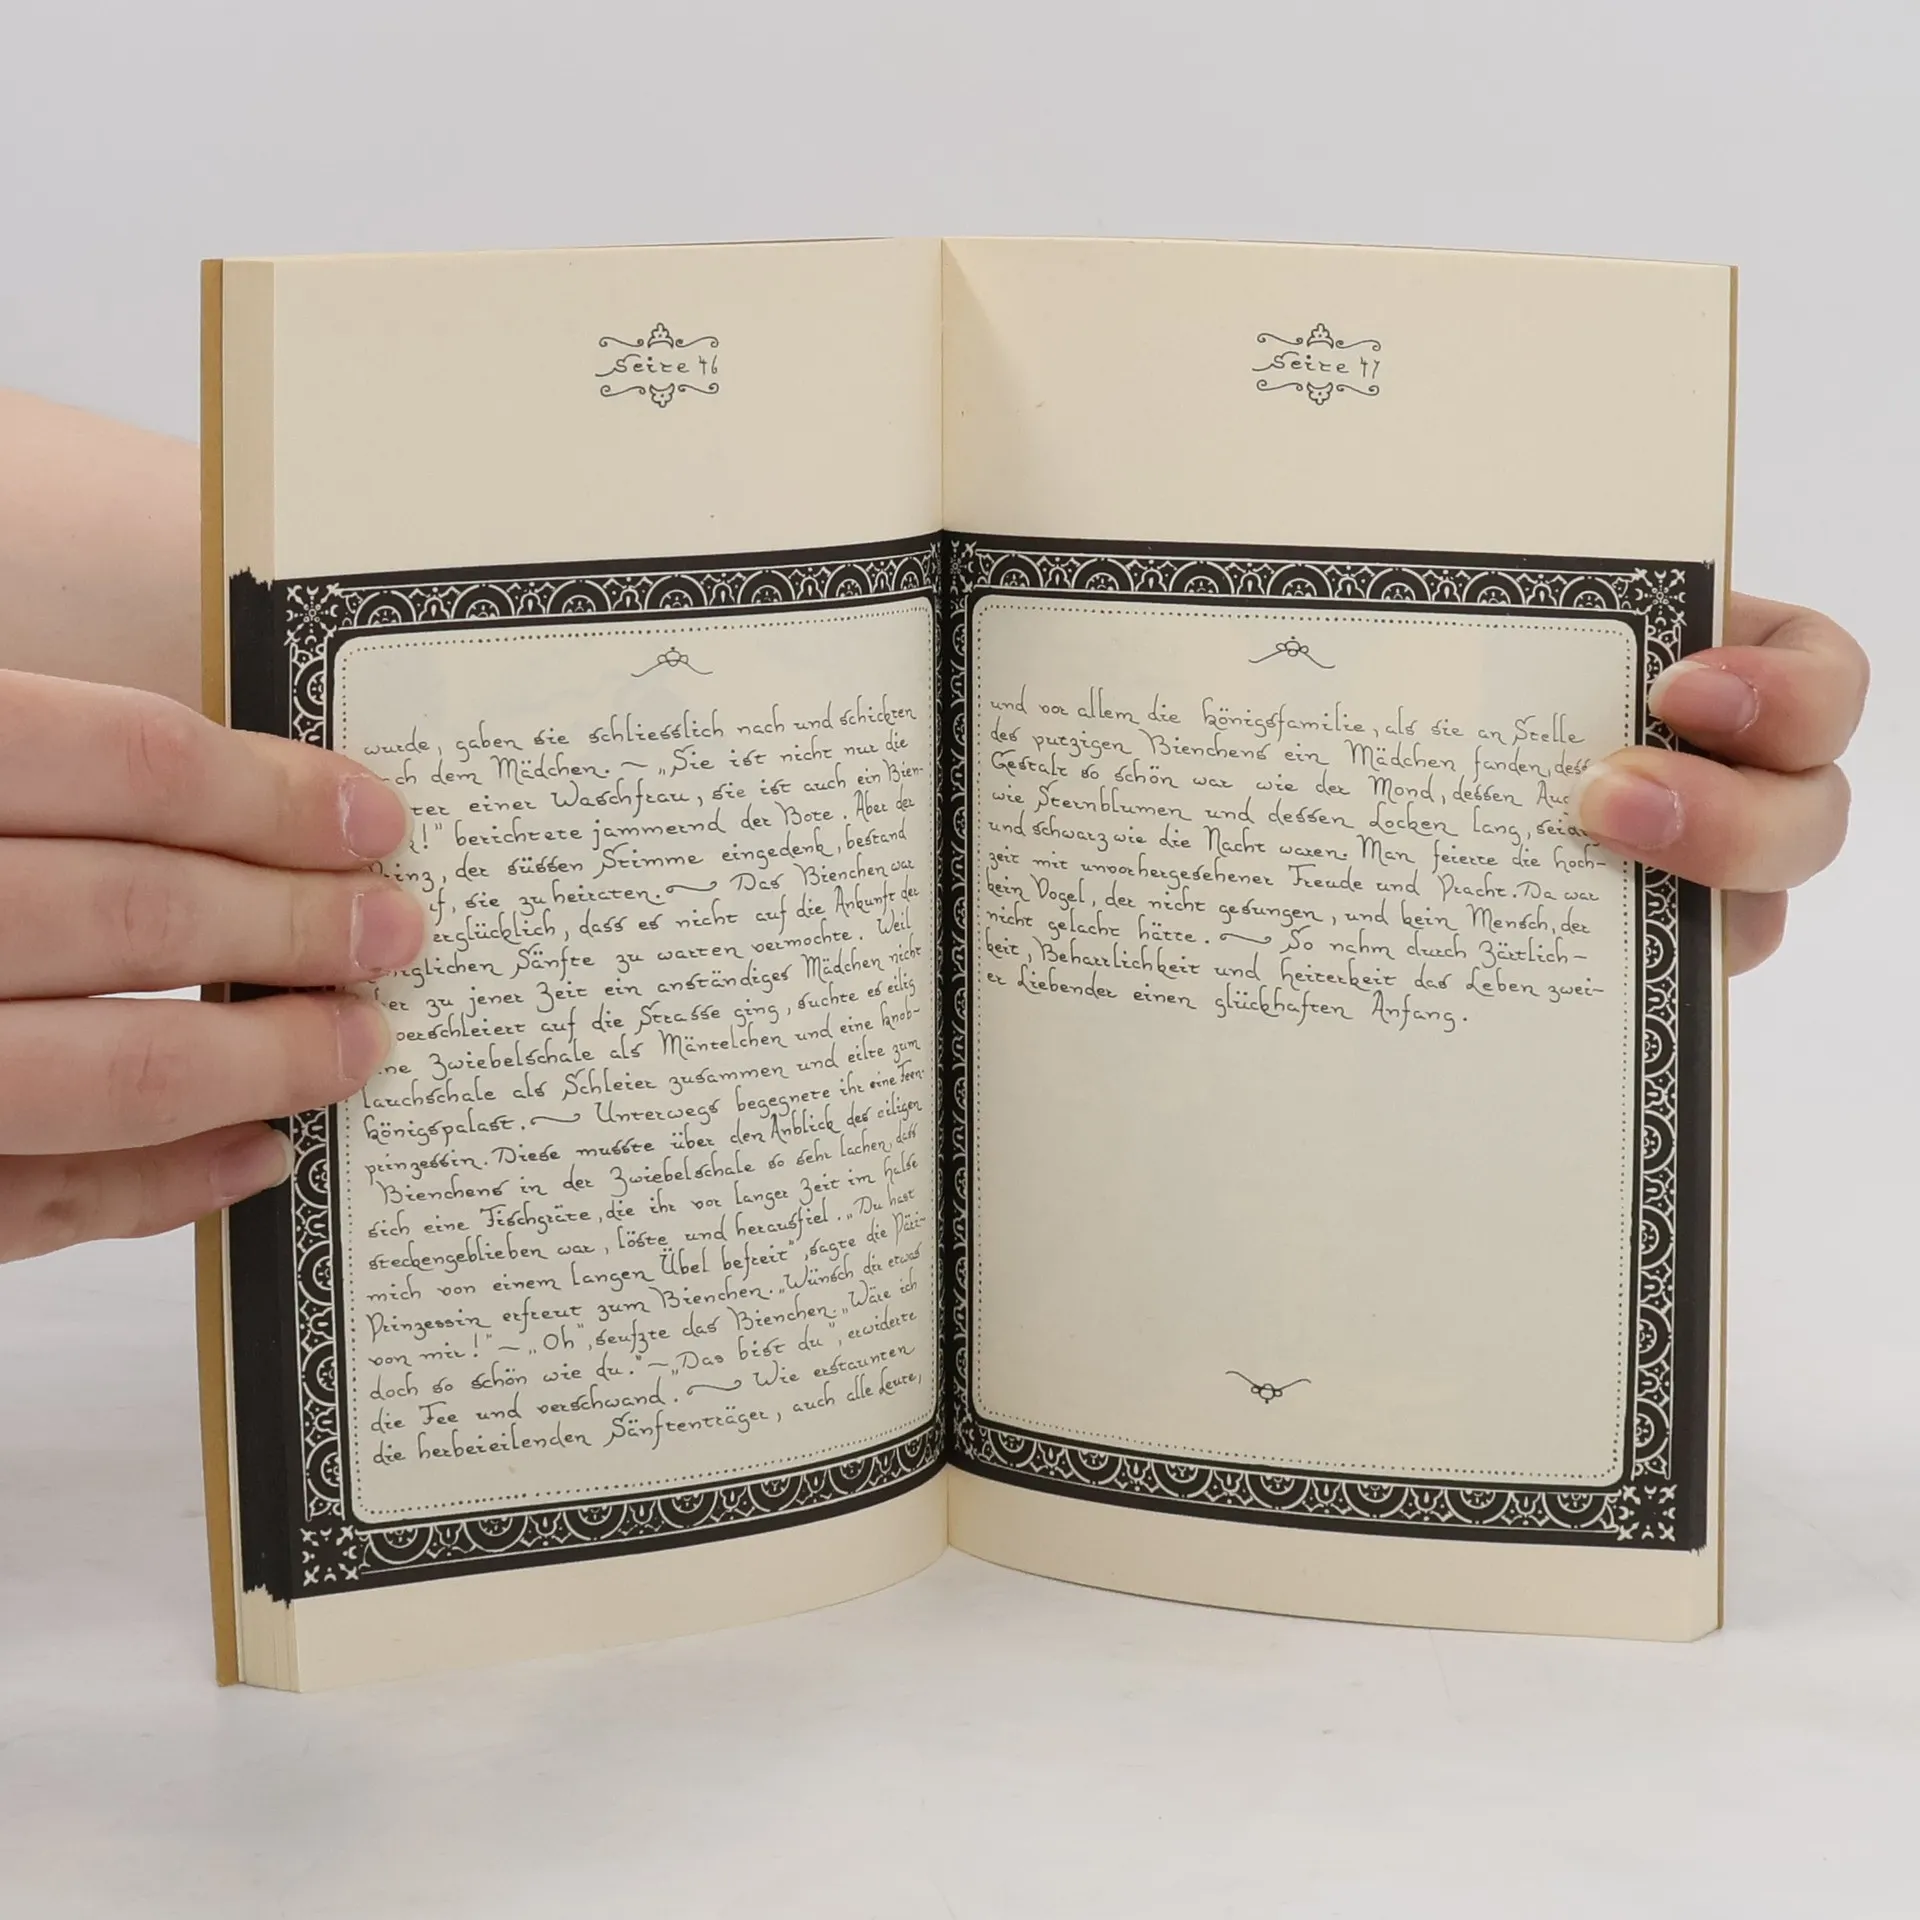 Seite 46
wurde, gaben sie schliesslich nach und schickten
ch dem Mädchen. ~ „Sie ist nicht nur die
ter einer Waschfrau, sie ist auch ein Bien-
!" berichtete jammernd der Bote. Aber der
inz, der süssen Stimme eingedenk, bestand
f, sie zu heiraten. ~ Das Bienchen war
erglücklich, dass es nicht auf die Ankunft der
iglichen Sänfte zu warten vermochte. Weil
er zu jener Zeit ein anständiges Mädchen nicht
verschleiert auf die Strasse ging, suchte es eilig
ne Zwiebelschale als Mäntelchen und eine Knob-
lauchschale als Schleier zusammen und eilte zum
Königspalast. ~ Unterwegs begegnete ihr eine Feen-
prinzessin. Diese musste über den Anblick des eiligen
Bienchens in der Zwiebelschale so sehr lachen, dass
sich eine Fischgräte, die ihr vor langer Zeit im Halse
steckengeblieben war, löste und herausfiel. „Du hast
mich von einem langen Übel befreit", sagte die Päri-
Prinzessin erfreut zum Bienchen. „Wünsch dir etwas
von mir!" ~ „Oh", seufzte das Bienchen. „Wäre ich
doch so schön wie du." ~ „Das bist du", erwiderte
die Fee und verschwand. ~ Wie erstaunten
die herbeieilenden Sänftenträger, auch alle Leute,
Seite 47
und vor allem die Königsfamilie, als sie an Stelle
des putzigen Bienchens ein Mädchen fanden, dess
Gestalt so schön war wie der Mond, dessen Aug
wie Sternblumen und dessen Locken lang, seidi
und schwarz wie die Nacht waren. Man feierte die Hoch-
zeit mit unvorhergesehener Freude und Pracht. Da war
kein Vogel, der nicht gesungen, und kein Mensch, der
nicht gelacht hätte. ~ So nahm durch Zärtlich-
keit, Beharrlichkeit und Heiterkeit das Leben zwei-
er Liebender einen glückhaften Anfang.